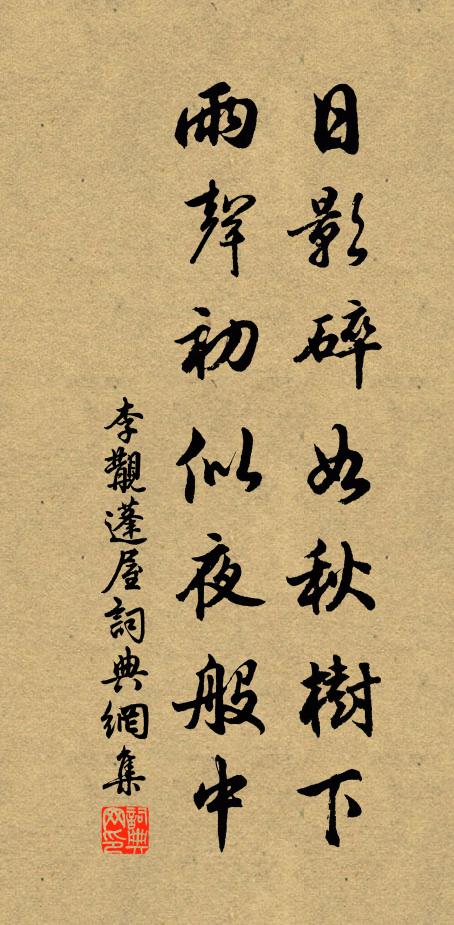 日影碎如秋樹下
雨聲初似夜船中
李覯蓬屋詞典網集
詞典網印